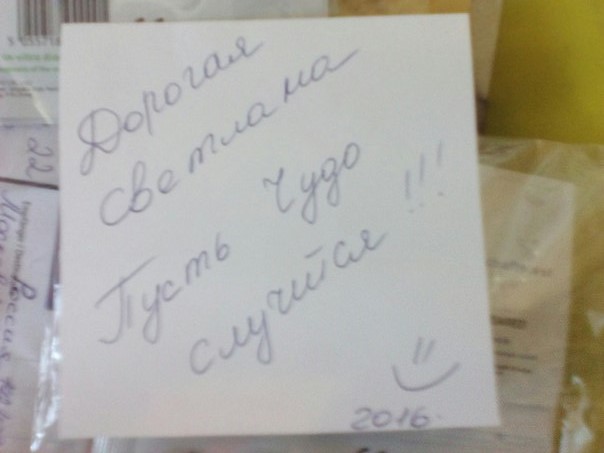 Дорогая
Светлана
Пусть Чудо
случится!!!
2016.
22
Россия